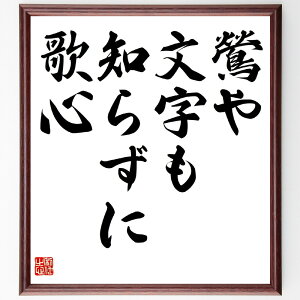 鶯や
文字も
知らずに
歌心